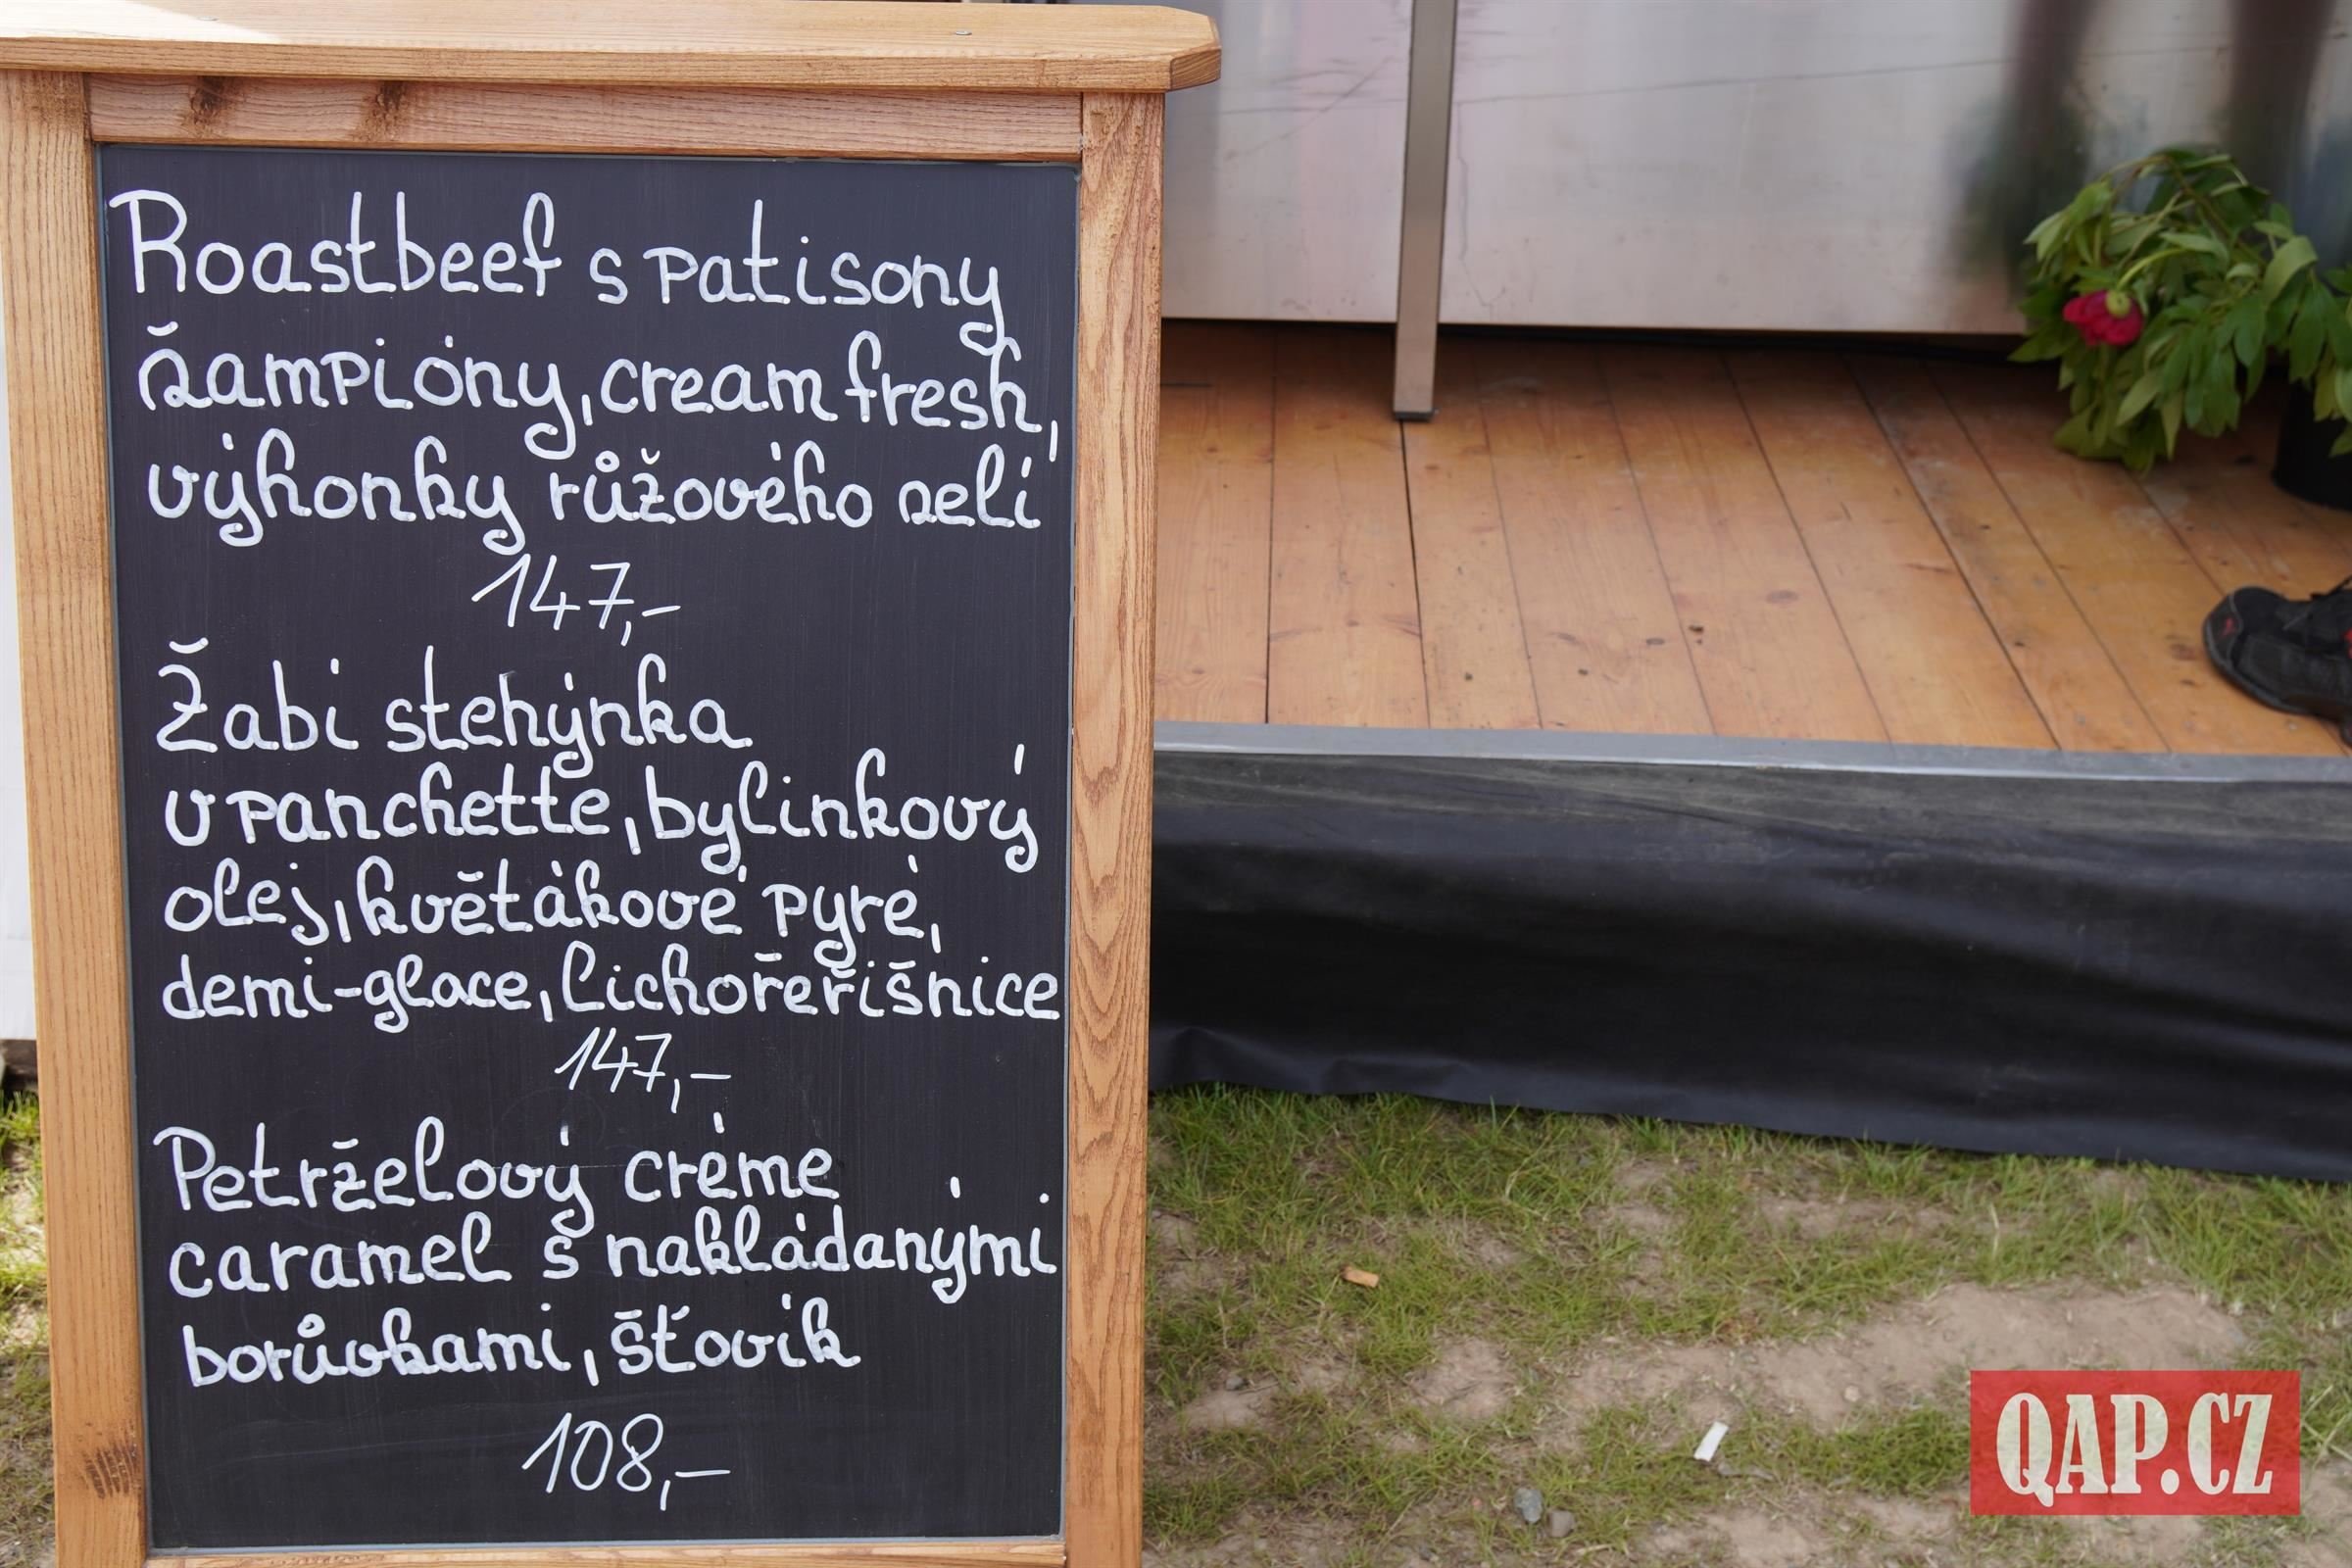 Roastbeef s patisony
žampióny, cream fresh,
výhonky růžového zelí
147,-
Žabi stehýnka
v panchette, bylinkový
olej, květákové pyré,
demi-glace, lichořeřišnice
147,-
Petrželový créme
caramel s nakládanými
borůvkami, šťovík
108,-
QAP.CZ